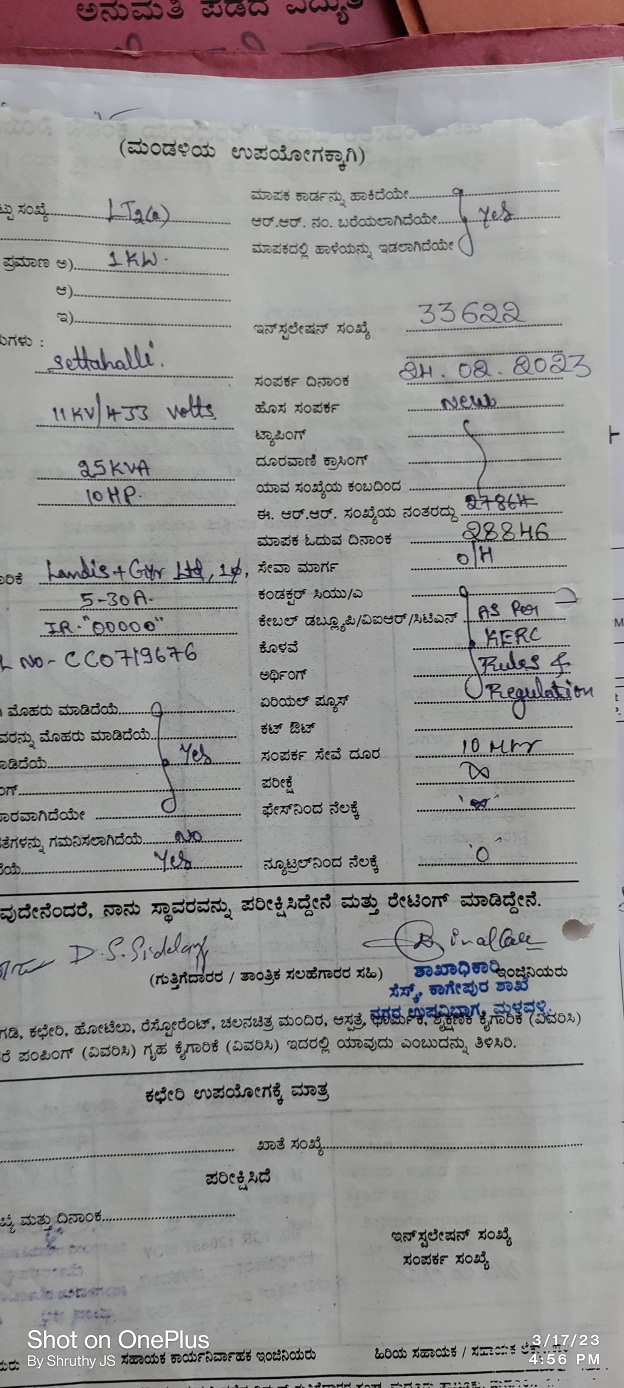 ಅನುಮತಿ ಪಡೆದ ವಿದ್ಯುತ್
(ಮಂಡಳಿಯ ಉಪಯೋಗಕ್ಕಾಗಿ)
ಮಾಪಕ ಕಾರ್ಡನ್ನು ಹಾಕಿದೆಯೇ
ಟ್ಟು ಸಂಖ್ಯೆ LT2(a) ಆರ್.ಆರ್. ನಂ. ಬರೆಯಲಾಗಿದೆಯೇ Yes
ಮಾಪಕದಲ್ಲಿ ಹಾಳೆಯನ್ನು ಇಡಲಾಗಿದೆಯೇ
ಪ್ರಮಾಣ ಅ) 1KW.
ಆ)
ಇ)
ಇನ್‌ಸ್ಟಲೇಷನ್ ಸಂಖ್ಯೆ 33622
ಗಳು :
Settahalli.
ಸಂಪರ್ಕ ದಿನಾಂಕ 24.02.2023
11KV/433 Volts ಹೊಸ ಸಂಪರ್ಕ New
ಟ್ಯಾಪಿಂಗ್
25KVA ದೂರವಾಣಿ ಕ್ರಾಸಿಂಗ್
10HP. ಯಾವ ಸಂಖ್ಯೆಯ ಕಂಬದಿಂದ
ಈ. ಆರ್.ಆರ್. ಸಂಖ್ಯೆಯ ನಂತರದ್ದು 27864
ಮಾಪಕ ಓದುವ ದಿನಾಂಕ 28846
ರಿಕೆ Landis+Gyr Ltd, 1φ, ಸೇವಾ ಮಾರ್ಗ O/H
5-30A. ಕಂಡಕ್ಟರ್ ಸಿಯು/ಎ
IR-"00000" ಕೇಬಲ್ ಡಬ್ಲ್ಯೂಪಿ/ವಿಐಆರ್/ಸಿಟಿಎಸ್ AS Per
L NO-CC0719676 ಕೊಳವೆ KERC
ಅರ್ಥಿಂಗ್ Rules &
ಮೊಹರು ಮಾಡಿದೆಯೆ ಏರಿಯಲ್ ಫ್ಯೂಸ್ Regulation
ವರನ್ನು ಮೊಹರು ಮಾಡಿದೆಯೆ ಕಟ್ ಔಟ್
ಾಡಿದೆಯೆ Yes ಸಂಪರ್ಕ ಸೇವೆ ದೂರ 10 Mtr
ಂಗ್ ಪರೀಕ್ಷೆ ∞
ಾರವಾಗಿದೆಯೇ ಫೇಸ್‌ನಿಂದ ನೆಲಕ್ಕೆ '∞'
ತೆಗಳನ್ನು ಗಮನಿಸಲಾಗಿದೆಯೆ NO
ೆಯೆ Yes ನ್ಯೂಟ್ರಲ್‌ನಿಂದ ನೆಲಕ್ಕೆ '0'
ವುದೇನೆಂದರೆ, ನಾನು ಸ್ಥಾವರವನ್ನು ಪರೀಕ್ಷಿಸಿದ್ದೇನೆ ಮತ್ತು ರೇಟಿಂಗ್ ಮಾಡಿದ್ದೇನೆ.
(ಗುತ್ತಿಗೆದಾರರ / ತಾಂತ್ರಿಕ ಸಲಹೆಗಾರರ ಸಹಿ) ಶಾಖಾಧಿಕಾರಿ ಇಂಜಿನಿಯರು
ಸೆಸ್ಕ್, ಕಾಗೇಪುರ ಶಾಖೆ
ನಗರ ಉಪವಿಭಾಗ, ಮಳವಳ್ಳಿ
ಗಡಿ, ಕಛೇರಿ, ಹೋಟೆಲು, ರೆಸ್ಟೋರೆಂಟ್, ಚಲನಚಿತ್ರ ಮಂದಿರ, ಆಸ್ಪತ್ರೆ, ಧಾರ್ಮಿಕ, ಶೈಕ್ಷಣಿಕ ಕೈಗಾರಿಕೆ (ವಿವರಿಸಿ)
ರೆ ಪಂಪಿಂಗ್ (ವಿವರಿಸಿ) ಗೃಹ ಕೈಗಾರಿಕೆ (ವಿವರಿಸಿ) ಇದರಲ್ಲಿ ಯಾವುದು ಎಂಬುದನ್ನು ತಿಳಿಸಿರಿ.
ಕಛೇರಿ ಉಪಯೋಗಕ್ಕೆ ಮಾತ್ರ
ಖಾತೆ ಸಂಖ್ಯೆ
ಪರೀಕ್ಷಿಸಿದೆ
ಖ್ಯೆ ಮತ್ತು ದಿನಾಂಕ
ಇನ್‌ಸ್ಟಲೇಷನ್ ಸಂಖ್ಯೆ
ಸಂಪರ್ಕ ಸಂಖ್ಯೆ
Shot on OnePlus
By Shruthy JS
3/17/23
4:56 PM
ಯರು ಸಹಾಯಕ ಕಾರ್ಯನಿರ್ವಾಹಕ ಇಂಜಿನಿಯರು ಹಿರಿಯ ಸಹಾಯಕ / ಸಹಾಯಕ